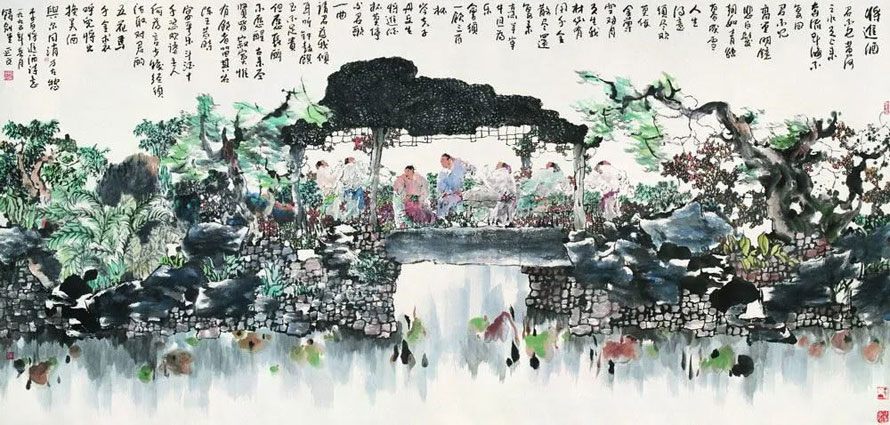 將進酒
君不見黃河
之水天上來
奔流到海不
復回
君不見
高堂明鏡
悲白髮
朝如青絲
暮成雪
人生
得意
須盡歡
莫使
金樽
空對月
天生我
材必有
用千金
散盡還
復來
烹羊宰
牛且爲
樂
會須
一飲三百
杯
岑夫子
丹丘生
將進酒
杯莫停
與君歌
一曲
請君爲我傾
耳聽鐘鼓饌
玉不足貴
但願長醉
不願醒古來聖
賢皆寂寞惟
有飲者留其名
陳王昔時
宴平樂斗酒十
千恣歡謔主人
何爲言少錢徑須
沽取對君酌
五花馬
千金裘
呼兒將出
換美酒
與爾同消万古愁
將進酒詩意
一九九五年